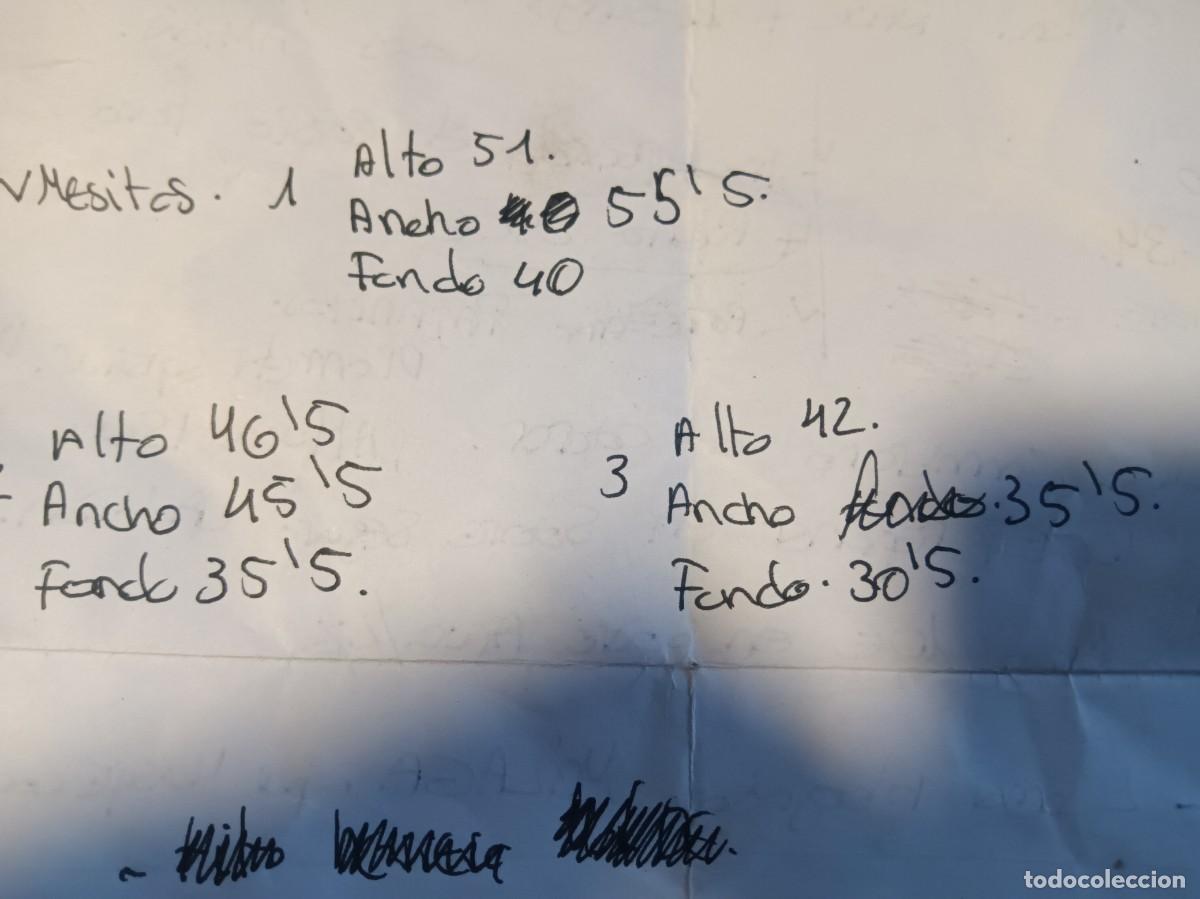 Mesitas. 1
Alto 51.
Ancho 55'5.
Fondo 40
Alto 46'5
Ancho 45'5
Fondo 35'5.
3
Alto 42.
Ancho 35'5.
Fondo. 30'5.
todocoleccion